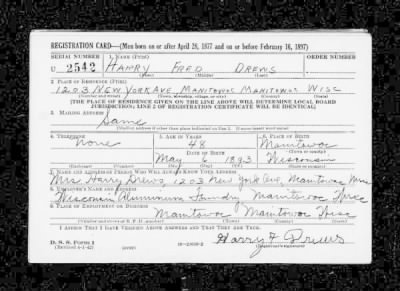 REGISTRATION CARD—(Men born on or after April 28, 1877 and on or before February 16, 1897)
SERIAL NUMBER 1. NAME (Print) ORDER NUMBER
U 2542 HARRY FRED DREWS
(First) (Middle) (Last)
2. PLACE OF RESIDENCE (Print)
1203 NEW YORK AVE MANITOWOC MANITOWOC WISC
(Number and street) (Town, township, village, or city) (County) (State)
[THE PLACE OF RESIDENCE GIVEN ON THE LINE ABOVE WILL DETERMINE LOCAL BOARD
JURISDICTION; LINE 2 OF REGISTRATION CERTIFICATE WILL BE IDENTICAL]
3. MAILING ADDRESS
Same
[Mailing address if other than place indicated on line 2. If same insert word same]
4. TELEPHONE 5. AGE IN YEARS 6. PLACE OF BIRTH
None 48 Manitowoc
DATE OF BIRTH (Town or county)
May 6 1893 Wisconsin
(Mo.) (Day) (Yr.) (State or country)
7. NAME AND ADDRESS OF PERSON WHO WILL ALWAYS KNOW YOUR ADDRESS
Mrs Harry Drews, 1203 New York Ave, Manitowoc Wisc
8. EMPLOYER'S NAME AND ADDRESS
Wisconsin Aluminum Foundry Manitowoc Wisc
9. PLACE OF EMPLOYMENT OR BUSINESS
Manitowoc Manitowoc Wisc
(Number and street or R. F. D. number) (Town) (County) (State)
I AFFIRM THAT I HAVE VERIFIED ABOVE ANSWERS AND THAT THEY ARE TRUE.
D. S. S. Form 1
(Revised 4-1-42) (over)
Harry F Drews
(Registrant's signature)